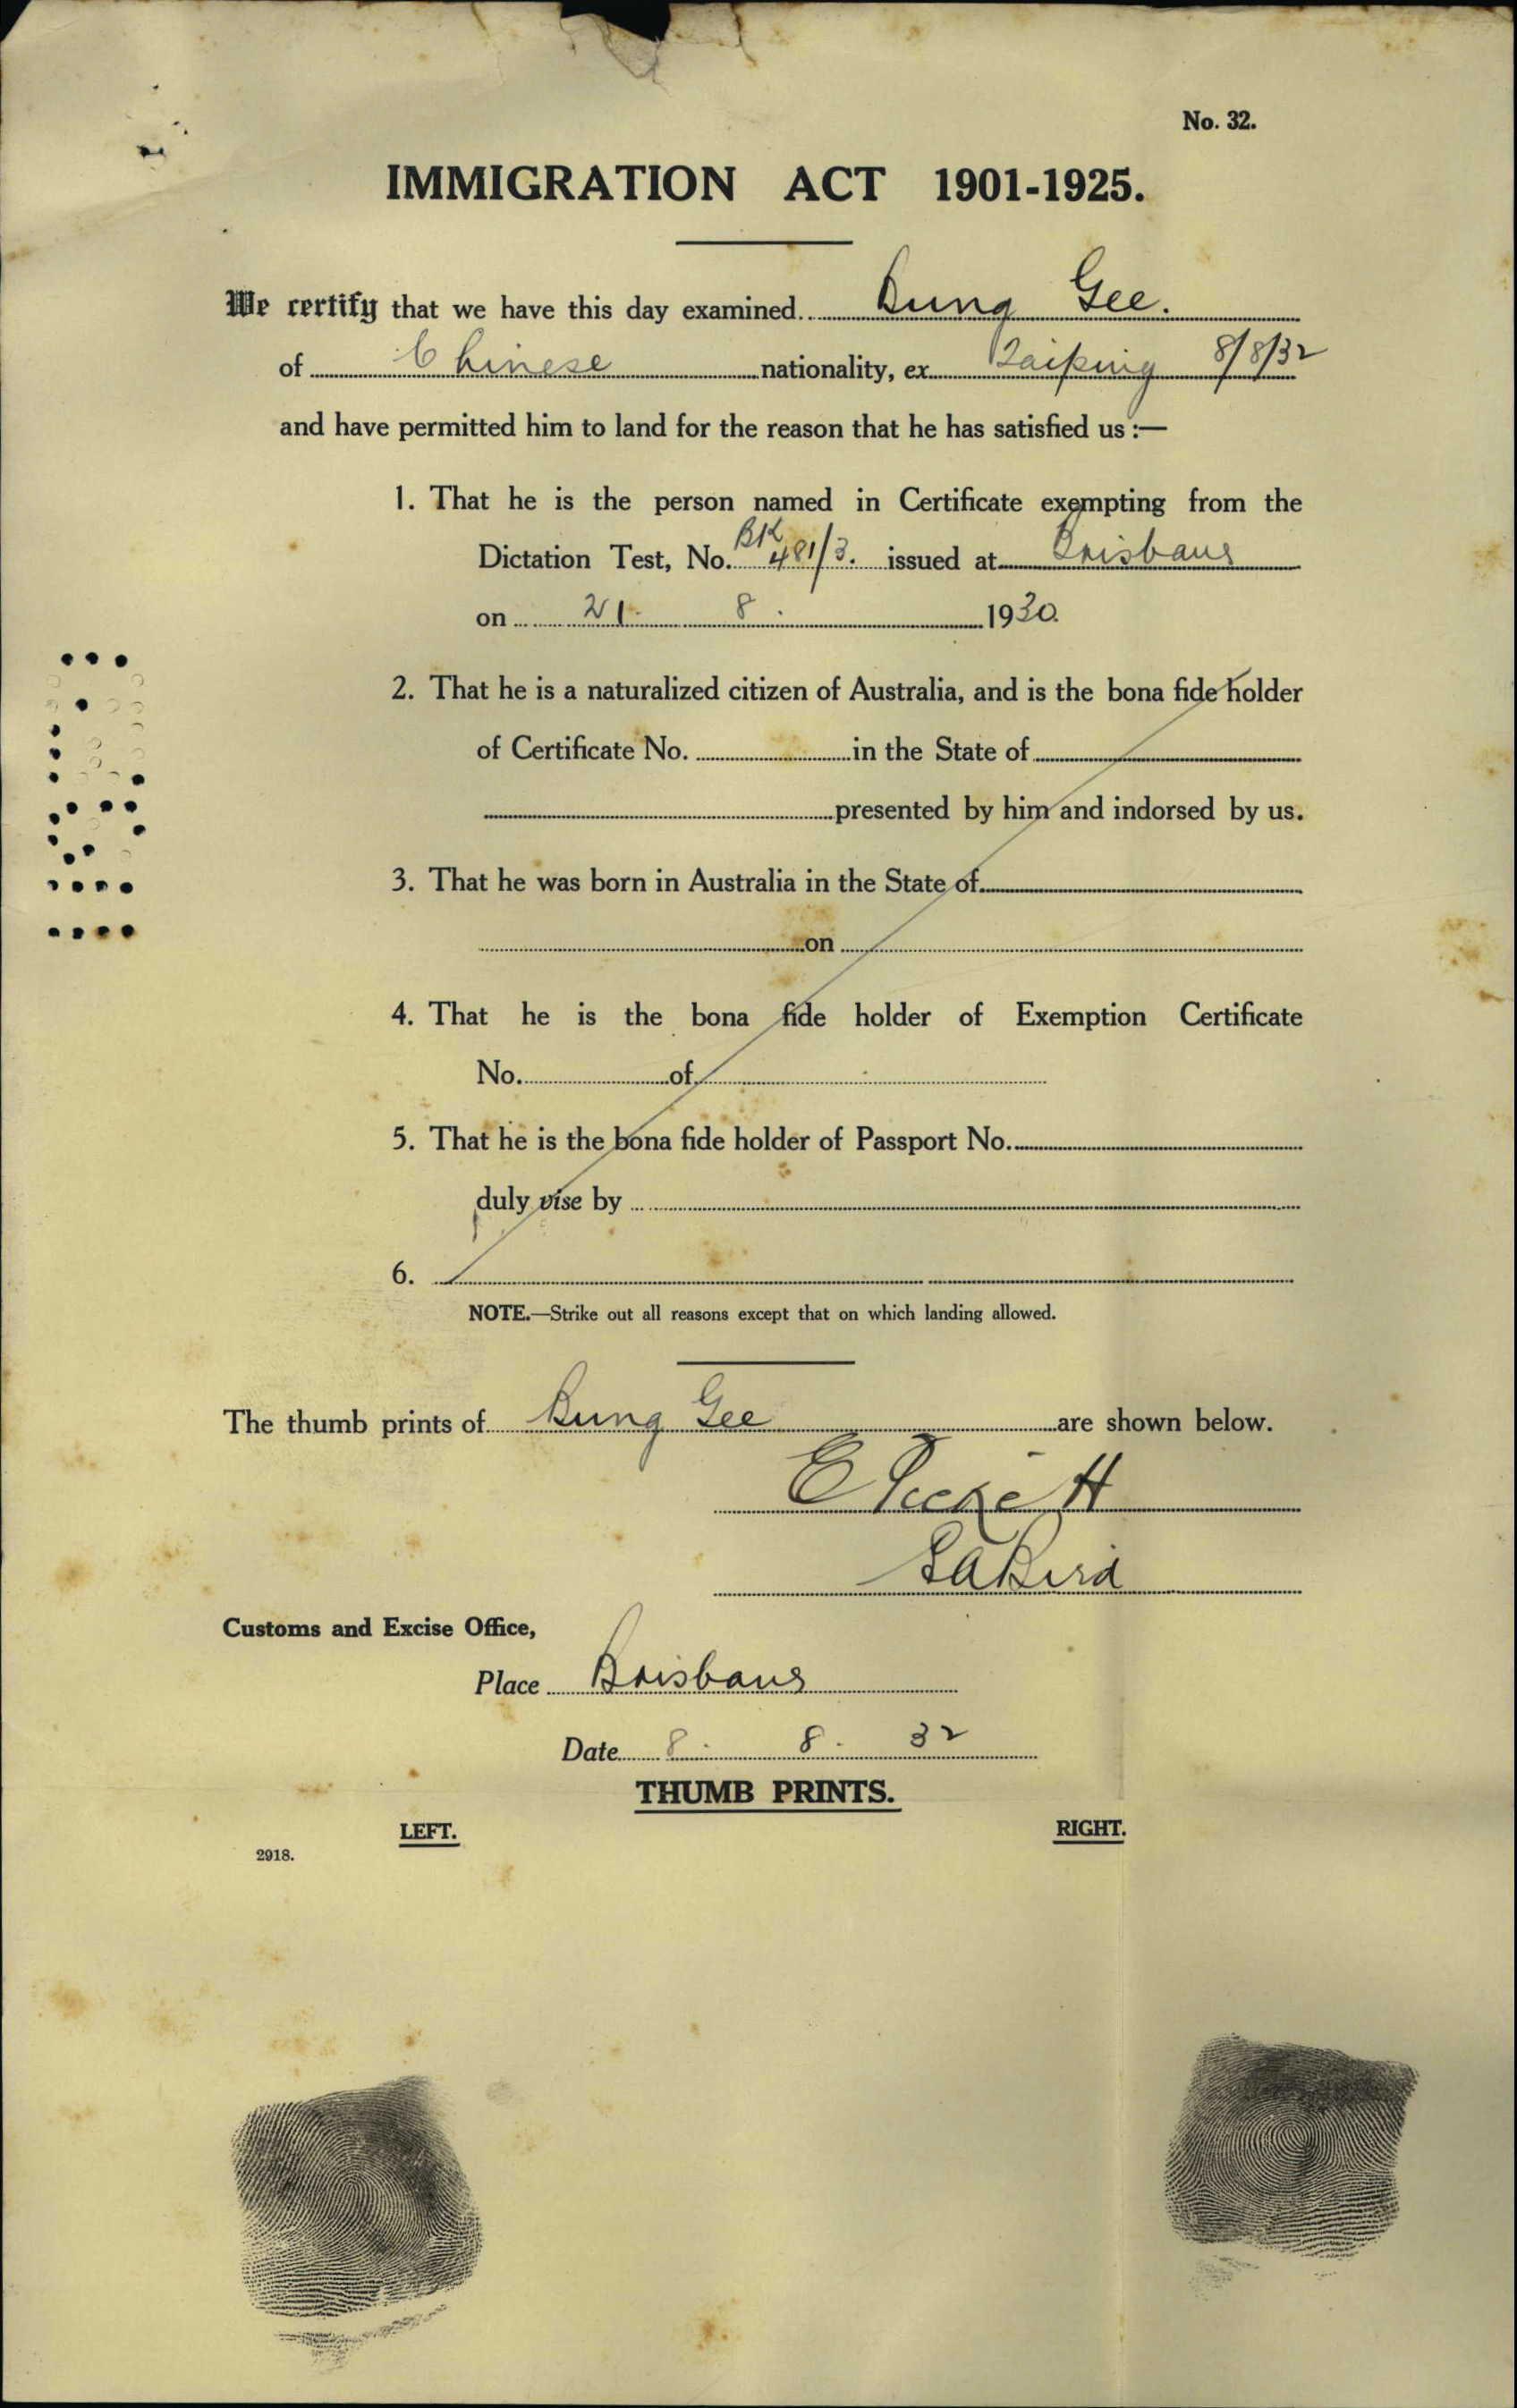 No. 32.
IMMIGRATION ACT 1901-1925.
We certify that we have this day examined Bung Gee.
of Chinese nationality, ex Taiping 8/8/32
and have permitted him to land for the reason that he has satisfied us :—
1. That he is the person named in Certificate exempting from the
Dictation Test, No. BK 481/3. issued at Brisbane
on 21. 8. 1930.
2. That he is a naturalized citizen of Australia, and is the bona fide holder
of Certificate No. in the State of
presented by him and indorsed by us.
3. That he was born in Australia in the State of
on
4. That he is the bona fide holder of Exemption Certificate
No. of
5. That he is the bona fide holder of Passport No.
duly vise by
6.
NOTE.—Strike out all reasons except that on which landing allowed.
The thumb prints of Bung Gee are shown below.
SABird
Customs and Excise Office,
Place Brisbane
Date 8. 8. 32
THUMB PRINTS.
LEFT. RIGHT.
2918.